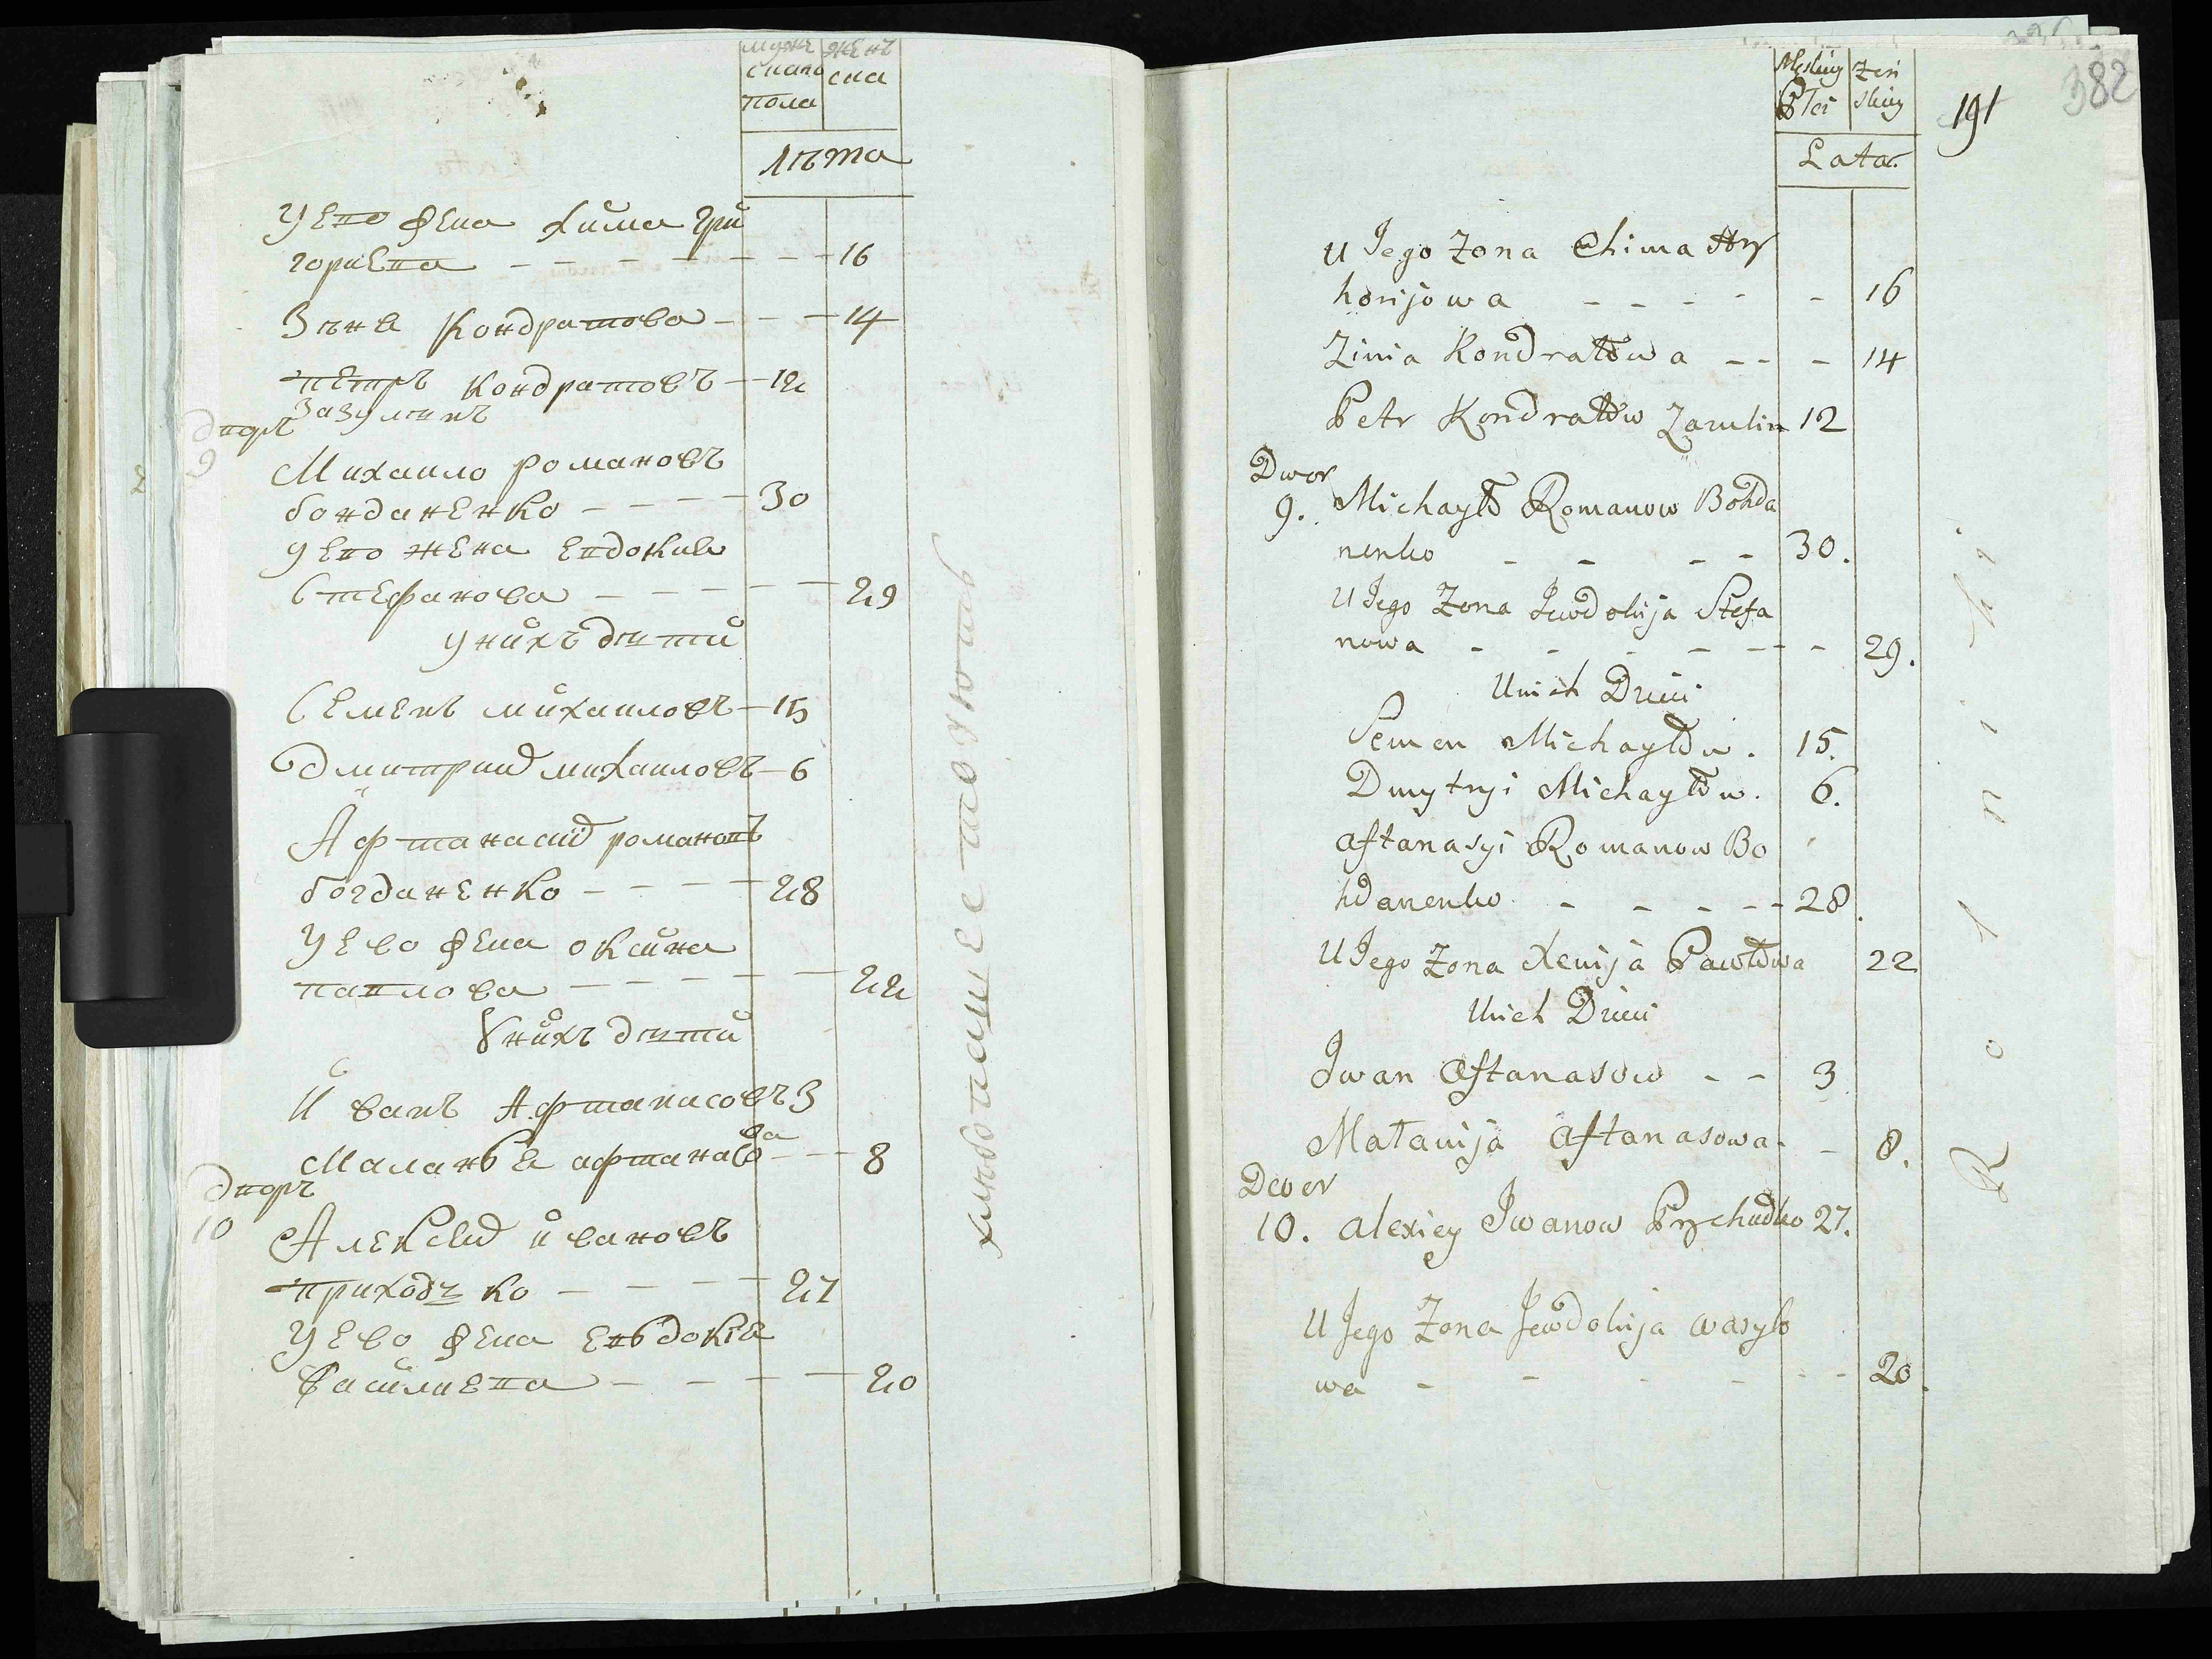 мужеска
скаго
пола
женъ
ска
лѣта
у его жена хима гри
гориева - - - - - - 16
Зѣнѧ Кондратова - - - 14
петръ Кондратовъ - 12
Зазулинъ
дворъ
9
Михаило романовъ
богданенко - - - - 30
у его жена евдокия
Стефанова - - - - - 29
у нихъ дѣти
Семенъ михаиловъ - 15
Дмитрий михаиловъ - 6
Афтанасий романовъ
богданенко - - - - 28
У ево жена оксина
павлова - - - - - 22
У нихъ дѣти
Иванъ Афтанасовъ 3
Маланья афтанасова - - 8
дворъ
10
Алексей ивановъ
приходько - - - - 27
У ево жена евьдокия
Василиева - - - - - 20
хлѣбопашественнои
Męskiey
Płci
Żeń
skiey
191
382
Lata
U Jego Żona Chima Hry
horijowa - - - - - 16
Zinia Kondratowa - - - 14
Petr Kondratow Zazulin 12
Dwor
9. Michayło Romanow Bohda
nenko - - - - 30.
U Jego Żona Jewdokija Stefa
nowa - - - - - - - 29.
U nich Dzieci
Semen Michayłow. 15.
Dmytryi Michayłow. 6.
Aftanasyi Romanow Bo
hdanenko - - - - - 28.
U Jego Żona Xenija Pawłowa 22
U nich Dzieci
Jwan Aftanasow - - 3
Małanija Aftanasowa - - 8.
Dwor
10. Alexiey Jwanow Prychodko 27.
U Jego Żona Jewdokija Wasylo
wa - - - - - - 20.
Rolniki